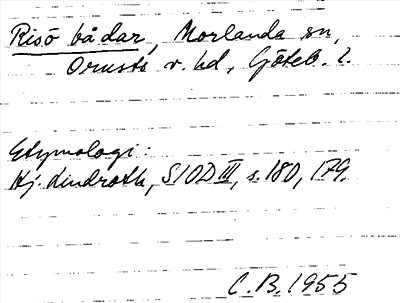 Risö bådar, Morlanda sn,
Orusts v. hd, Göteb. l.
Etymologi:
Hj. Lindroth, SIOD III, s. 180, 179.
C.B. 1955